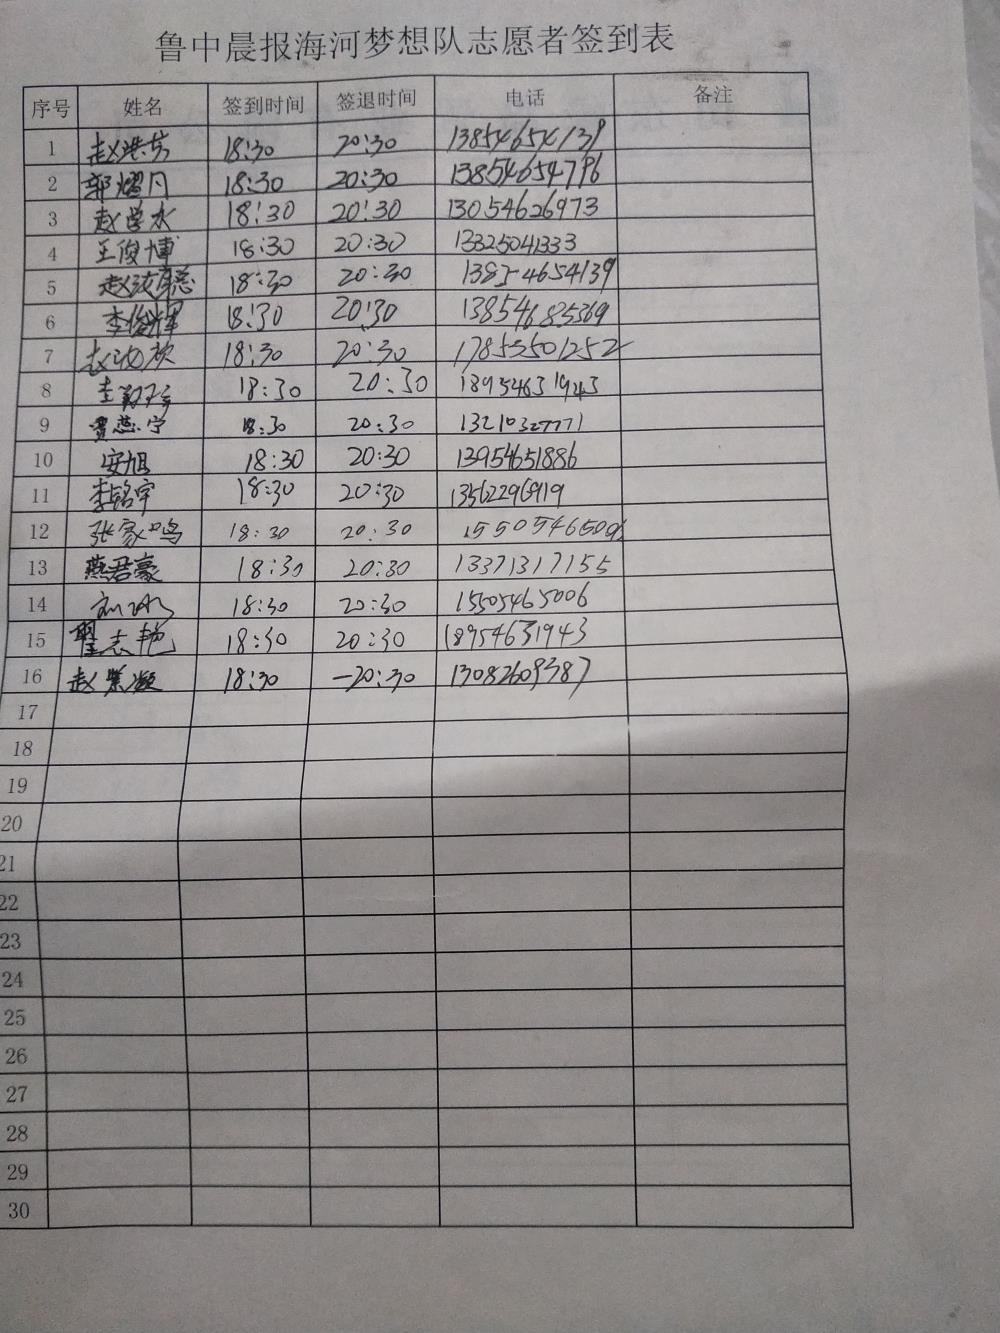 鲁中晨报海河梦想队志愿者签到表
序号 姓名 签到时间 签退时间 电话 备注
1 18:30 20:30 13854654139
2 郭熠月 18:30 20:30 13854654796
3 赵学水 18:30 20:30 13054626973
4 王俊博 18:30 20:30 13325041333
5 18:30 20:30 13854654139
6 李俊辉 18:30 20:30 13854685369
7 18:30 20:30 17853501252
8 18:30 20:30 18954631943
9 贾蕊宁 18:30 20:30 13210327771
10 安旭 18:30 20:30 13954651886
11 李铭宇 18:30 20:30
12 张家鸣 18:30 20:30
13 燕君豪 18:30 20:30 13371317155
14 18:30 20:30 15505465006
15 翟志艳 18:30 20:30 18954631943
16 赵紫凝 18:30 20:30 13082609387
17
18
19
20
21
22
23
24
25
26
27
28
29
30